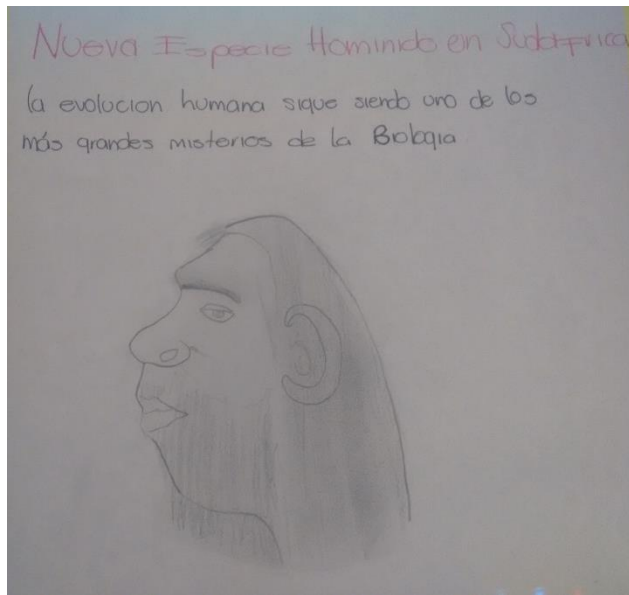 Nueva Especie Hominido en Sudafrica
la evolucion humana sigue siendo uno de los
más grandes misterios de la Biologia